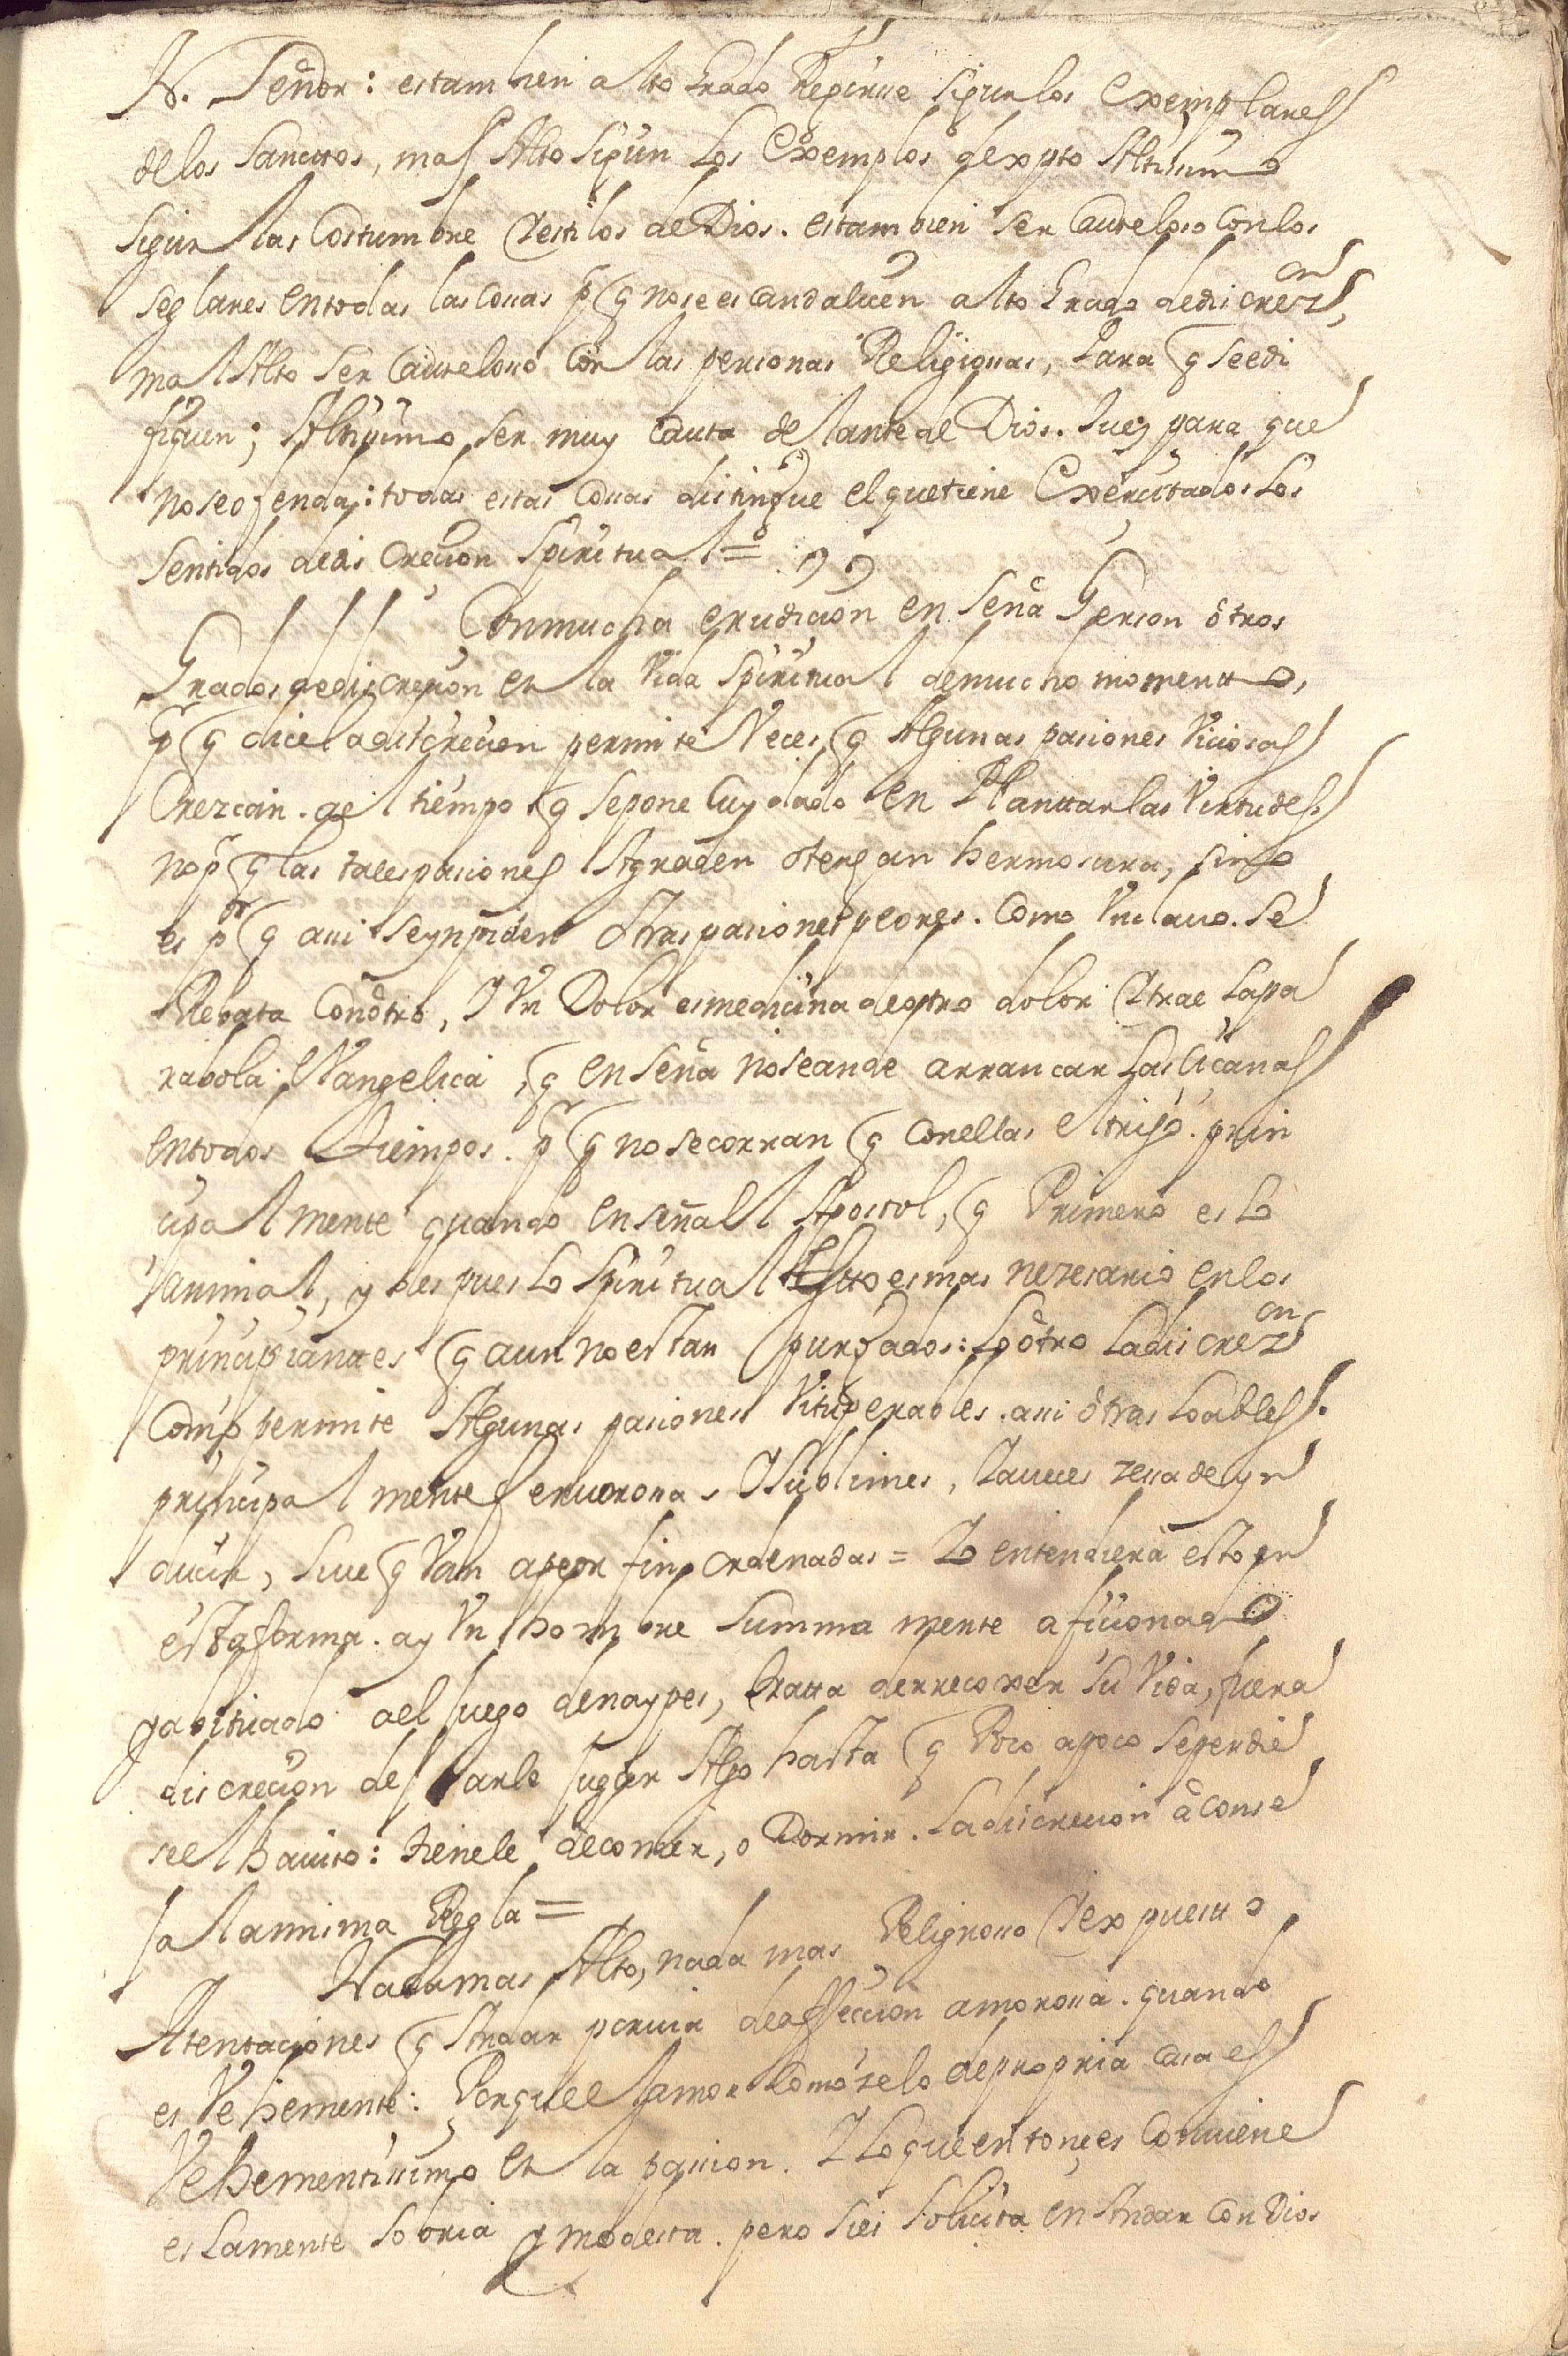 N. Señor: estambien alto Grado Regirse sigun los Exemplares
de los Sancttos, mas Alto sigun Los Exemplos de xpto Altissimo
sigun las Costumbre Y estilos de Dios. estambien ser Cauteloso Con los
seglares en todas las Cossas pª q no se escandalicen alto Grado de discrezon,
mas Alto ser Cauteloso Con las personas Religiossas, Para q se edi
fiquen; Altissimo ser muy Cauto delante de Dios. Juez para que
no se ofenda: todas estas Cossas distingue el que tiene Exercitados Los
sentidos de dis Crecion Spiritual =
Con mucha erudicion enseña Gerson otros
Grados de discrecion en la Vida Spiritual de mucho momentto,
pr q dice la discrecion permite Veces q Algunas pasiones Viciosas
Crezcan. de el tiempo q se pone Cuydado en Planttar las Virtudes.
no pr q las tales pasiones Agraden o tengan hermosura, sino
es por q assi se ynpiden otras pasiones peores. Como Un clavo. se
Rebata Con otro, Y Un Dolor es medicina de otro dolor Y trae La pa
rabola EVangelica, q enseña no se an de arrancar Las Cicañas
en todos tiempos. pr q no se corran q Con ellas el trigo. prin
cipalmente quando enseña el Apostol, q Primero es Lo
animal, y despues Lo Spiritual Estto es mas nezesario en los
principianttes q aun no estan purgados: Lo otro La discrezon
Como permite Algunas pasiones Vituperables. assi otras Loables.
principalmente fervorossas Y Sublimes, Y a veces zessa de yn
ducir, si ve q Van a peor fin ordenadas = Lo entendiera esto en
esta forma. ay Un hombre summamente aficionado
y abituado a el Juego de naypes, tratta de rrecoxer su Vida, fuera
discrecion dejarle Jugar Algo hasta q Poco a poco se perdie
se el havito: tienele de comer, o Dormir. La discrecion aconse
ja la misma Regla =
Nada mas Alto, nada mas Peligrosso Y expuestto
A tentaciones q Andar por via de affeccion amorossa. quando
es Vehemente: Porque el amor Como zelo de propria Casa es
Vehementissimo en la passion. Y Lo que entonçes Conviene
es La mente Sobria y modesta. pero si es solicita en Andar Con Dios